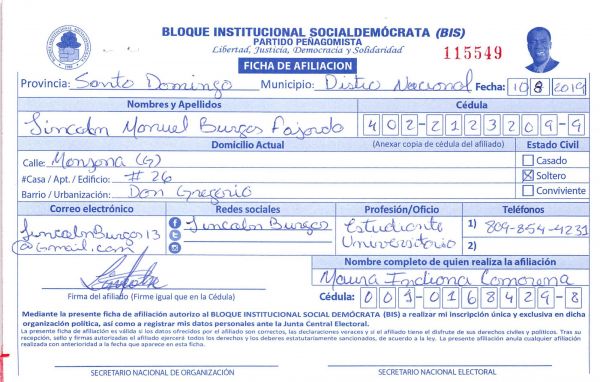 BLOQUE INSTITUCIONAL SOCIALDEMÓCRATA (BIS)
PARTIDO PEÑAGOMISTA
Libertad, Justicia, Democracia y Solidaridad
115549
FICHA DE AFILIACION
Provincia: Santo Domingo Municipio: Distio Nacional Fecha: 10 8 2019
Nombres y Apellidos Cédula
Lincoln Manuel Burgos Fajardo 402-2123209-9
Domicilio Actual (Anexar copia de cédula del afiliado) Estado Civil
Calle: Manzana (G) Casado
#Casa / Apt. / Edificio: # 26 Soltero
Barrio / Urbanización: Don Gregorio Conviviente
Correo electrónico Redes sociales Profesión/Oficio Teléfonos
LincolnBurgos13 Lincoln Burgos Estudiante 1) 809-854-4231
@Gmail.com Universitario 2)
Nombre completo de quien realiza la afiliación
Maura Indiana
Firma del afiliado (Firme igual que en la Cédula) Cédula: 001-0168429-8
Mediante la presente ficha de afiliación autorizo al BLOQUE INSTITUCIONAL SOCIAL DEMÓCRATA (BIS) a realizar mi inscripción única y exclusiva en dicha
organización política, así como a registrar mis datos personales ante la Junta Central Electoral.
La presente ficha de afiliación es válida si los datos ofrecidos por el afiliado son correctos, las declaraciones veraces y si el afiliado tiene el disfrute de sus derechos civiles y políticos. Tras su
recepción, sello y firmas autorizadas el afiliado ejercerá todos los derechos y los deberes estatutariamente sancionados, de acuerdo a la ley. La presente afiliación anula cualquier afiliación
realizada con anterioridad a la fecha que aparece en esta ficha.
SECRETARIO NACIONAL DE ORGANIZACIÓN SECRETARIO NACIONAL ELECTORAL